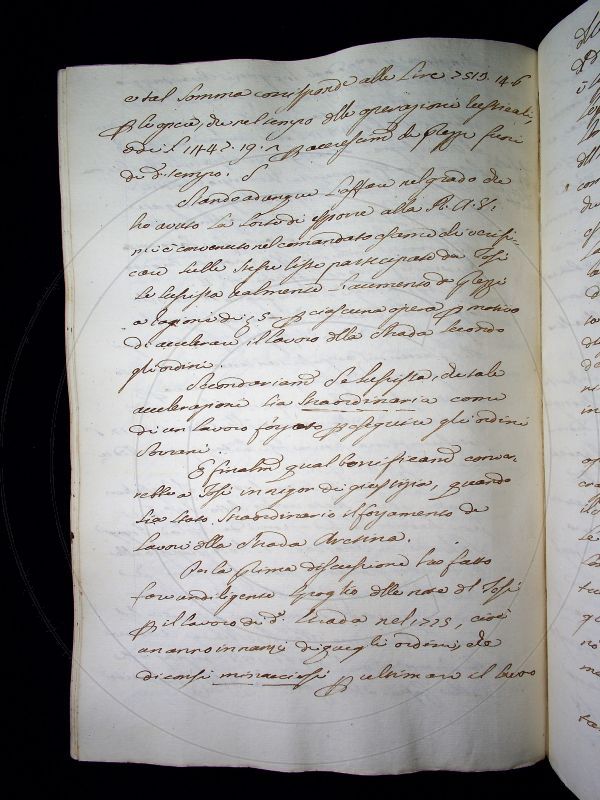 e tal somma corrisponde alle Lire 7519. 14. 6
p le opere, che nel tempo delle operazioni
di d.o tempo.
Stando adunque l'affare nel grado che
ho avuto la sorte di esporre alla R. A. V.
mi è convenuto nel comandato esame di verifi-
care sulle stesse liste partecipate da Tosi
se sussista realmente l'aumento de Prezzi
a ragione di s. 5 p ciascuna opera p motivo
di accelerare il lavoro della strada secondo
gli ordini.
Secondariam.e se sussista, che tale
accelerazione sia straordinaria come
di un lavoro forzato p eseguire gli ordini
Sovrani.
E finalm.e qual bonificam.o conver-
rebbe a Tosi in rigor di giustizia, quando
sia stato straordinario il forzamento de
Lavori della strada Aretina.
Per la prima discussione ho fatto
fare un diligente spoglio delle note del Tosi
p il lavoro di d.a strada nel 1775, cioè
un anno innanzi di quegli ordini, che
dicansi minacciosi p ultimare il lavoro